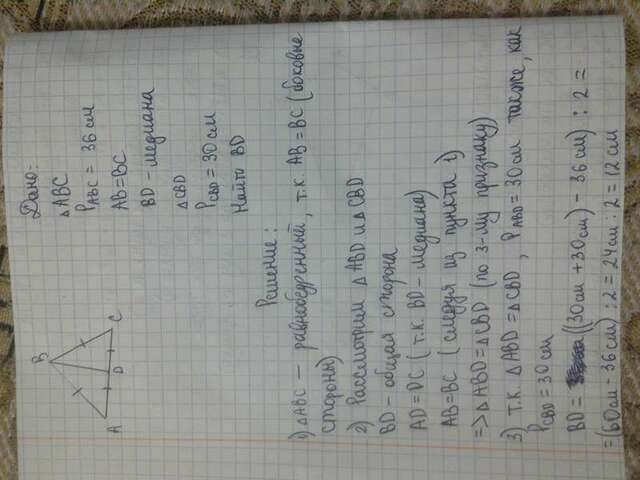 B
A
D
C
Дано:
△ABC
P_ABC = 36 см
AB=BC
BD - медиана
△CBD
P_CBD = 30 см
Найти BD
Решение:
1) △ABC — равнобедренный, т.к. AB=BC (боковые
стороны)
2) Рассмотрим △ABD и △CBD
BD - общая сторона
AD=DC (т.к. BD - медиана)
AB=BC (следуя из пункта 1)
=> △ABD=△CBD (по 3-му признаку)
3) т.к. △ABD=△CBD, P_ABD=30см также, как
P_CBD=30 см
BD= ((30см+30см) - 36 см) : 2 =
=(60см-36см) :2=24см : 2 = 12 см